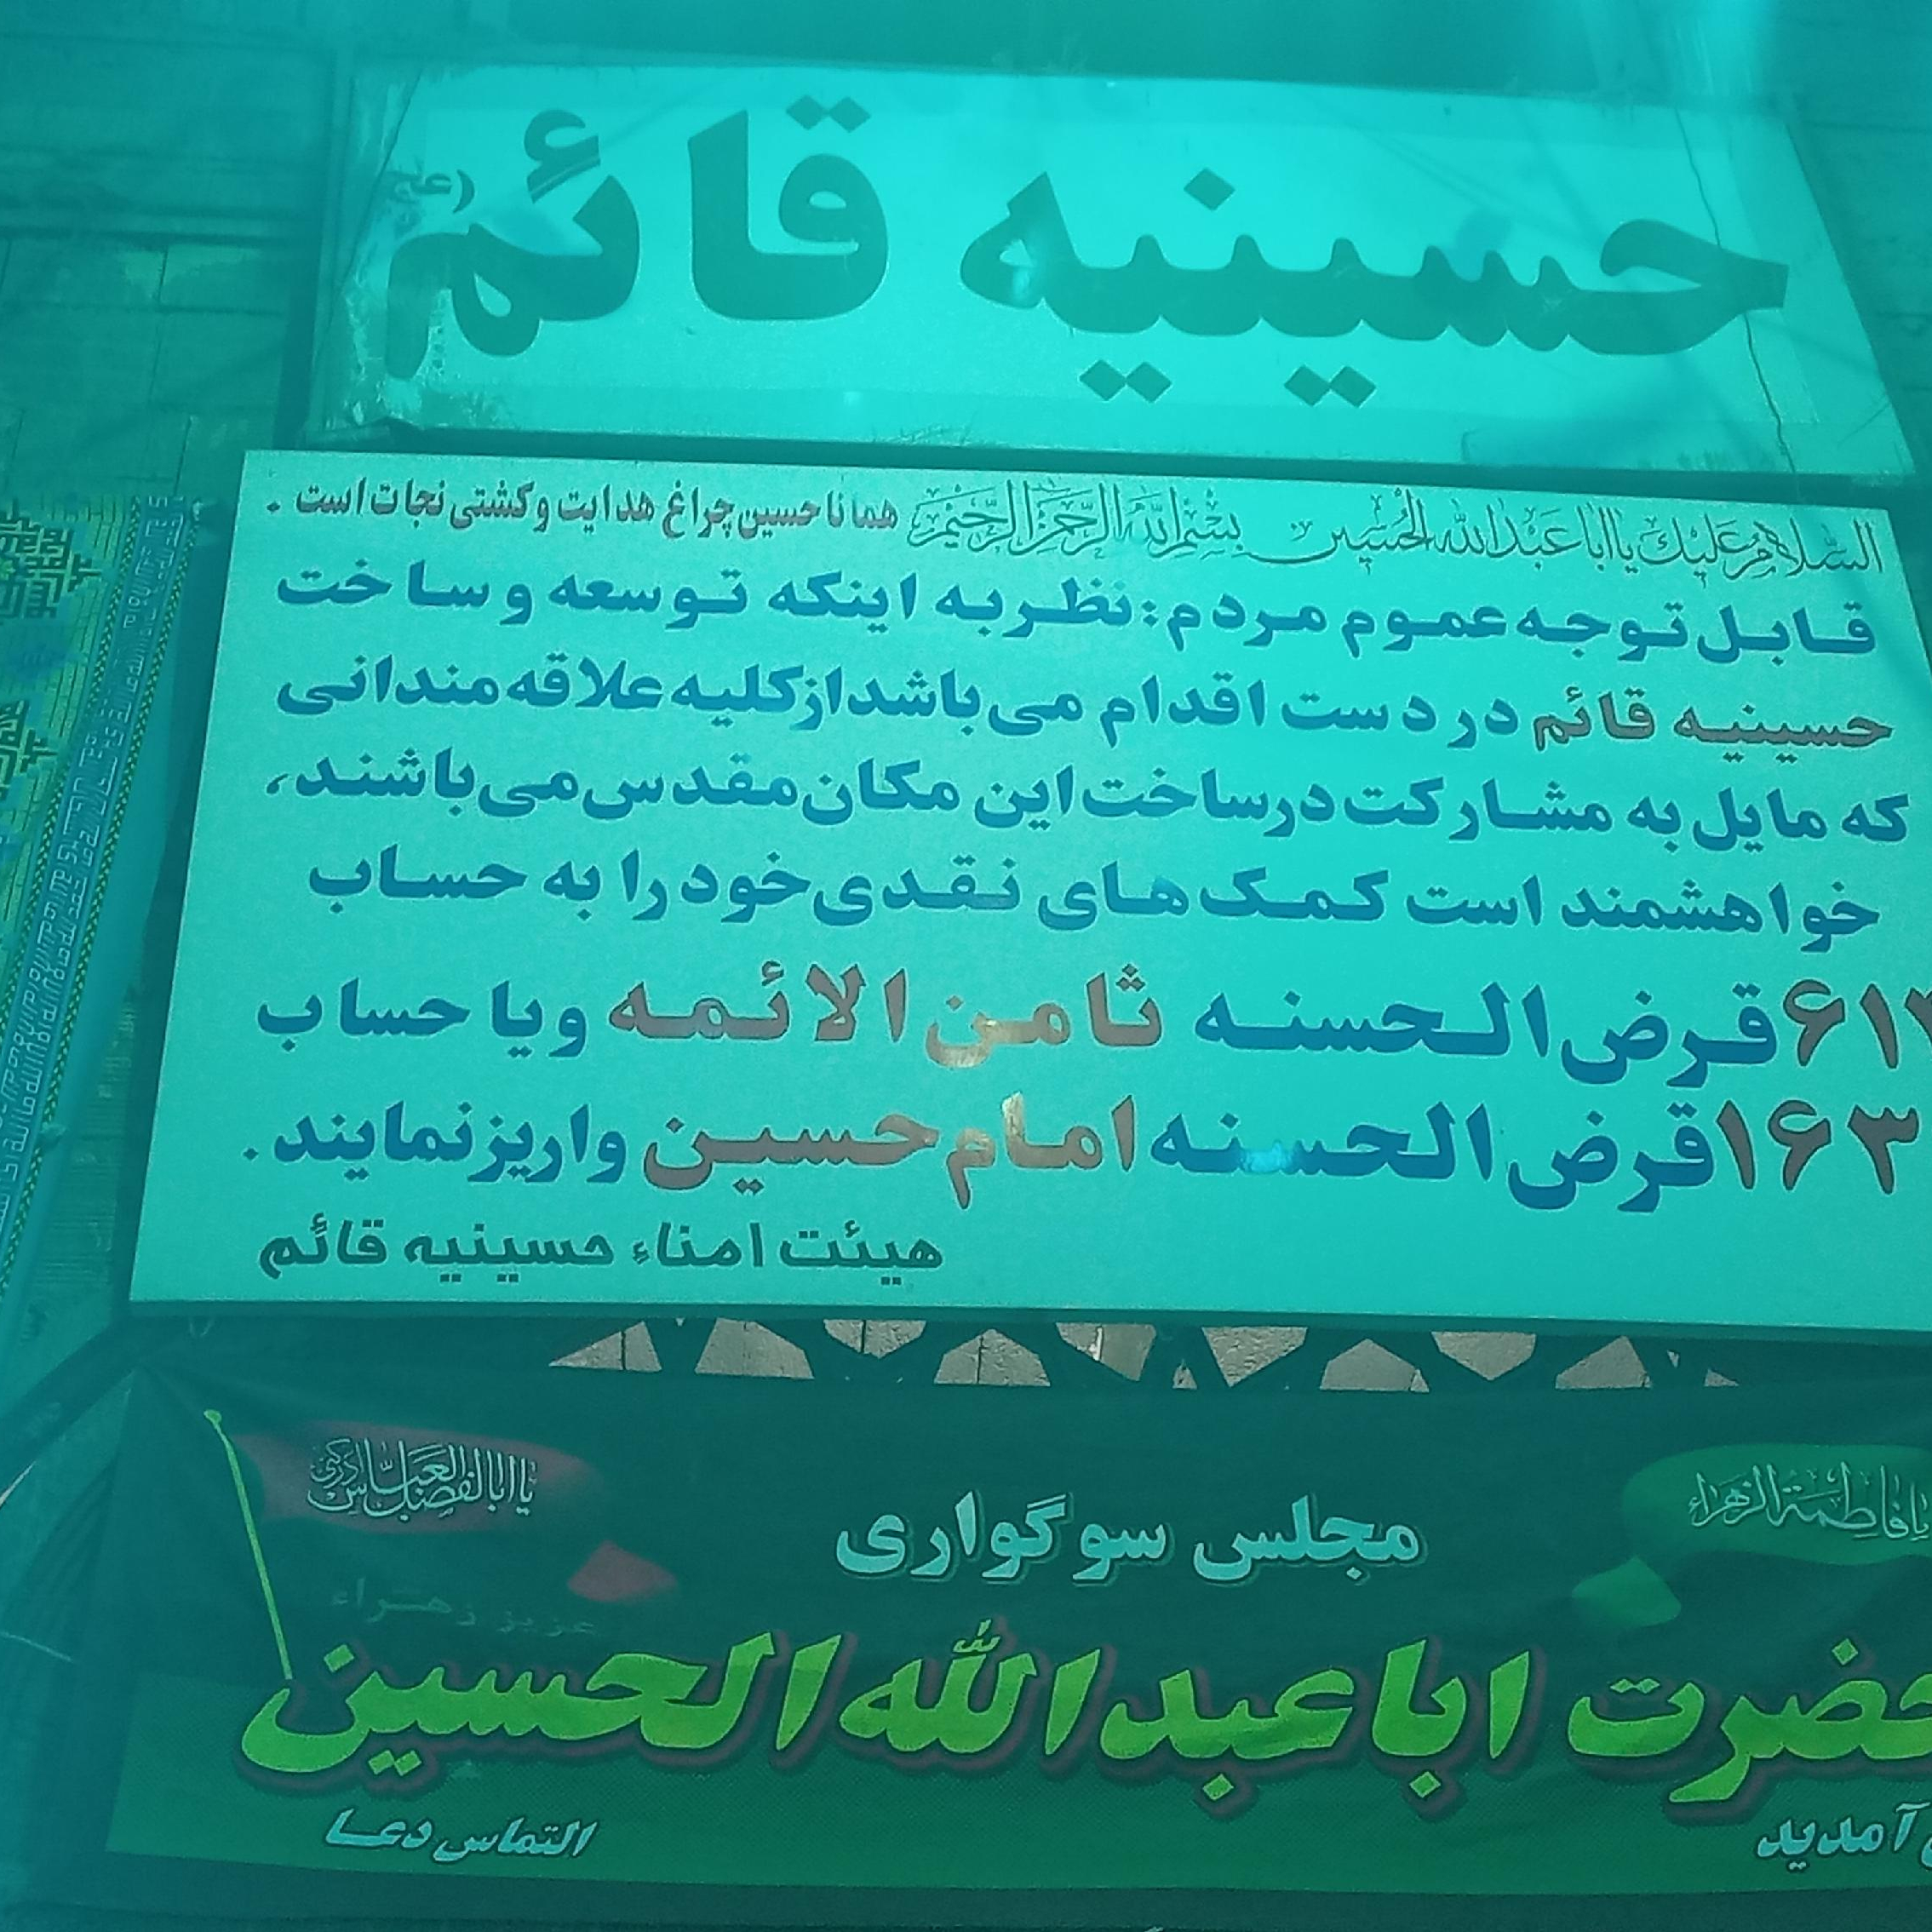 حسینیه قائم (عج)
السلام علیک یا ابا عبدالله الحسین بسم الله الرحمن الرحیم همانا حسین چراغ هدایت و کشتی نجات است .
قابل توجه عموم مردم : نظر به اینکه توسعه و ساخت
حسینیه قائم در دست اقدام می باشد از کلیه علاقه مندانی
که مایل به مشارکت در ساخت این مکان مقدس می باشند ،
خواهشمند است کمک های نقدی خود را به حساب
قرض الحسنه ثامن الائمه و یا حساب
۱۶۳ قرض الحسنه امام حسین واریز نمایند .
هیئت امناء حسینیه قائم
یا فاطمة الزهراء
یا اباالفضل العباس ادرکنی
مجلس سوگواری
عزیز زهراء
حضرت اباعبدالله الحسین
آمدید
التماس دعا